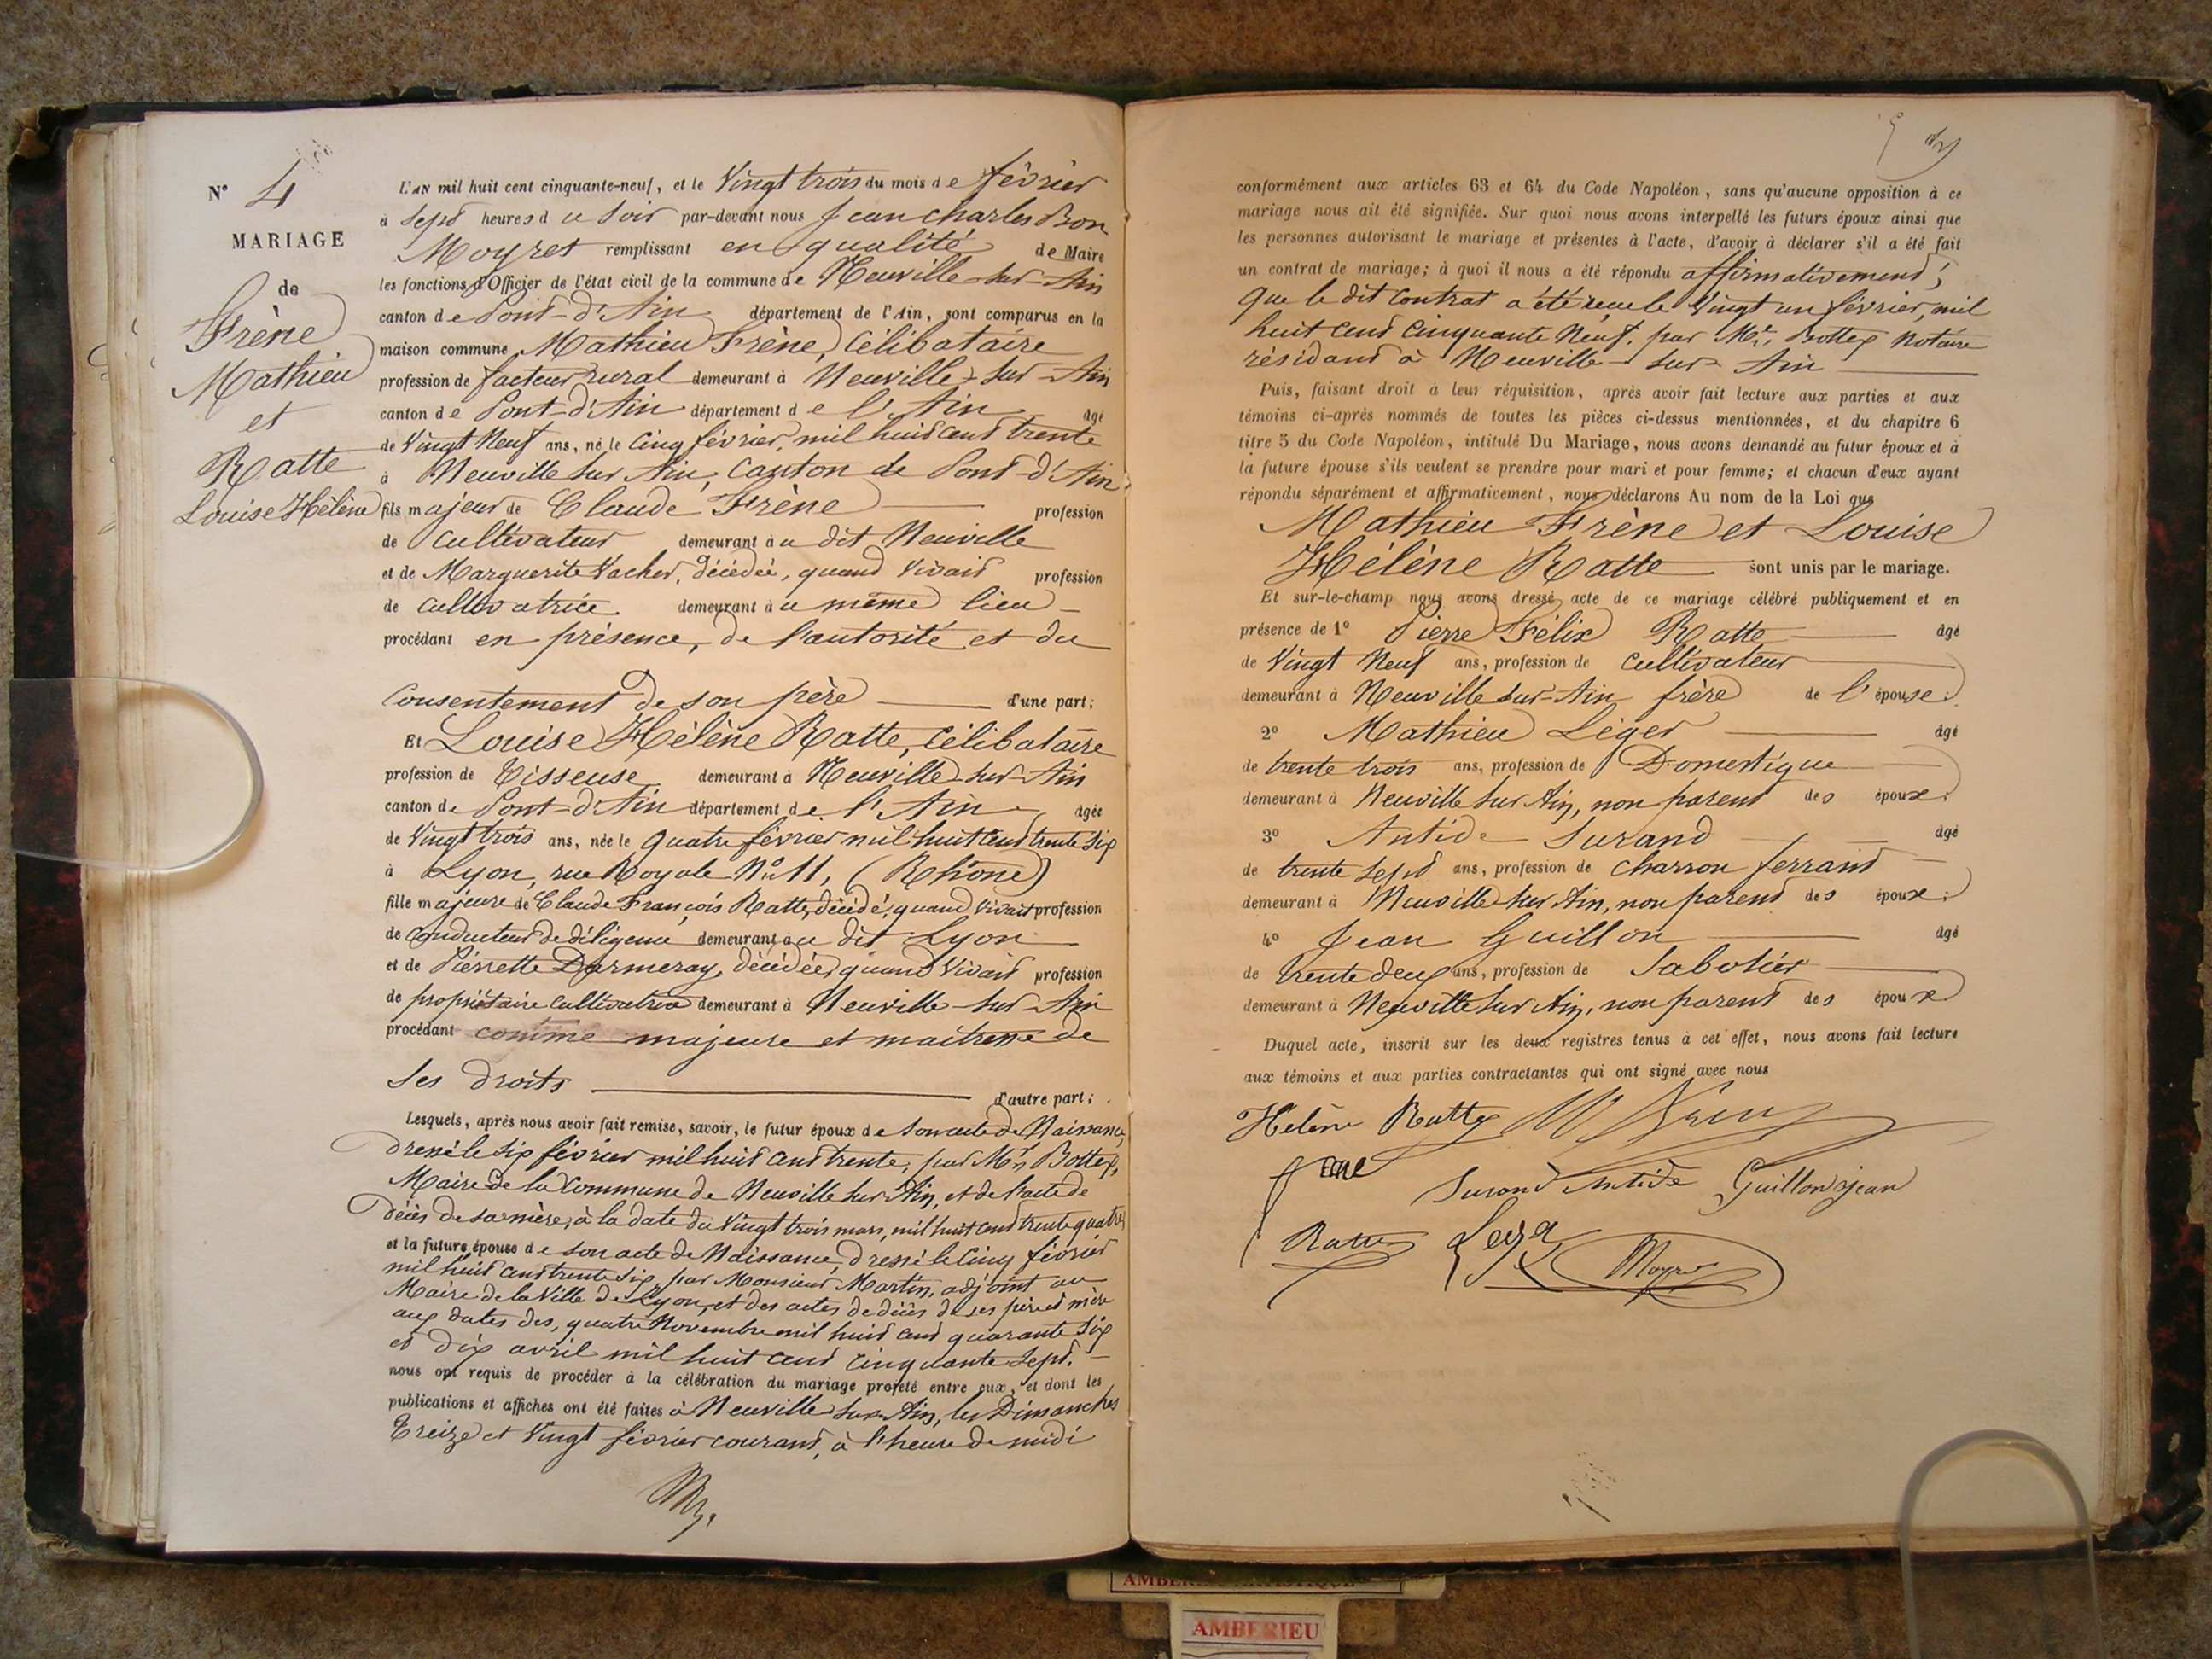 N° 4
MARIAGE
de
Frène
Mathieu
et
Ratte
Louise Hélène
L'AN mil huit cent cinquante-neuf, et le Vingt trois du mois de février
à sept heures du soir par-devant nous Jean Charles Bon
Moyret remplissant en qualité de Maire
les fonctions d'Officier de l'état civil de la commune de Neuville-sur-Ain
canton de Pont-d'Ain département de l'Ain, sont comparus en la
maison commune Mathieu Frène, Célibataire
profession de facteur rural demeurant à Neuville-sur-Ain
canton de Pont-d'Ain département de l'Ain âgé
de Vingt Neuf ans, né le cinq février, mil huit cent trente
à Neuville sur Ain, Canton de Pont-d'Ain
fils majeur de Claude Frène profession
de Cultivateur demeurant au dit Neuville
et de Marguerite Vacher, décédée, quand vivait profession
de cultivatrice demeurant au même lieu
procédant en présence, de l'autorité et du
Consentement de son père d'une part;
Et Louise Hélène Ratte, Célibataire
profession de Tisseuse demeurant à Neuville-sur-Ain
canton de Pont-d'Ain département de l'Ain âgée
de Vingt trois ans, née le quatre février mil huit cent trente six
à Lyon, rue Royale N° 11, (Rhône)
fille majeure de Claude François Ratte, décédé, quand vivait profession
de conducteur de diligence demeurant au dit Lyon
et de Pierrette Darmeray, décédée, quand vivait profession
de propriétaire cultivatrice demeurant à Neuville-sur-Ain
procédant comme majeure et maitresse de
ses droits d'autre part;
Lesquels, après nous avoir fait remise, savoir, le futur époux de son acte de Naissance,
dressé le six février mil huit cent trente, par Mr Bottex,
Maire de la Commune de Neuville sur Ain, et de l'acte de
décès de sa mère, à la date du vingt trois mars, mil huit cent trente quatre
et la future épouse de son acte de Naissance, dressé le cinq février
mil huit cent trente six, par Monsieur Martin, adjoint au
Maire de la Ville de Lyon, et des actes de décès de ses père et mère
aux dates des, quatre Novembre mil huit cent quarante six
et dix avril mil huit cent cinquante sept.
nous ont requis de procéder à la célébration du mariage projeté entre eux, et dont les
publications et affiches ont été faites à Neuville sur Ain, les Dimanches
Treize et Vingt février courant, à l'heure de midi
conformément aux articles 63 et 64 du Code Napoléon, sans qu'aucune opposition à ce
mariage nous ait été signifiée. Sur quoi nous avons interpellé les futurs époux ainsi que
les personnes autorisant le mariage et présentes à l'acte, d'avoir à déclarer s'il a été fait
un contrat de mariage; à quoi il nous a été répondu affirmativement;
que le dit contrat a été reçu le Vingt un février, mil
huit cent cinquante Neuf, par Mr Bottex Notaire
résidant à Neuville-sur-Ain
Puis, faisant droit à leur réquisition, après avoir fait lecture aux parties et aux
témoins ci-après nommés de toutes les pièces ci-dessus mentionnées, et du chapitre 6
titre 5 du Code Napoléon, intitulé Du Mariage, nous avons demandé au futur époux et à
la future épouse s'ils veulent se prendre pour mari et pour femme; et chacun d'eux ayant
répondu séparément et affirmativement, nous déclarons Au nom de la Loi que
Mathieu Frène et Louise
Hélène Ratte sont unis par le mariage.
Et sur-le-champ nous avons dressé acte de ce mariage célébré publiquement et en
présence de 1° Pierre Félix Ratte âgé
de Vingt Neuf ans, profession de cultivateur
demeurant à Neuville sur-Ain frère de l'épouse;
2° Mathieu Léger âgé
de trente trois ans, profession de Domestique
demeurant à Neuville sur Ain, non parent des époux;
3° Antide Surand âgé
de trente sept ans, profession de charron ferrant
demeurant à Neuville sur Ain, non parent des époux;
4° Jean Guillon âgé
de trente deux ans, profession de Sabotier
demeurant à Neuville sur Ain, non parent des époux
Duquel acte, inscrit sur les deux registres tenus à cet effet, nous avons fait lecture
aux témoins et aux parties contractantes qui ont signé avec nous
Hélène Ratte M Frene
Surand Antide Guillon jean
Ratte Leger Moyret
AMBERIEU